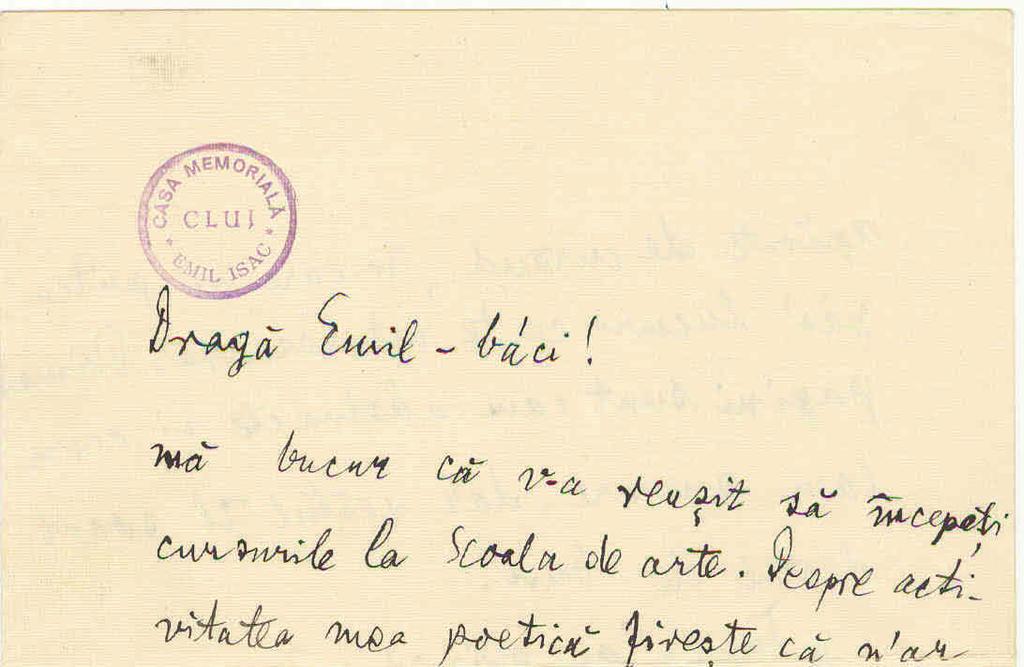 CASA MEMORIALĂ
CLUJ
* EMIL ISAC *
Dragă Emil-báci!
mă bucur că v-a reușit să începeți
cursurile la Scoala de arte. Despre acti-
vitatea mea poetică firește că n'ar